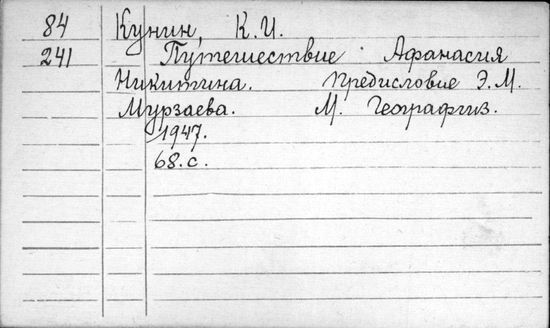 84 Кунин, К.И.
241 Путешествие Афанасия
Никитина. Предисловие Э.М.
Мурзаева. М. Географгиз.
1947.
68.с.